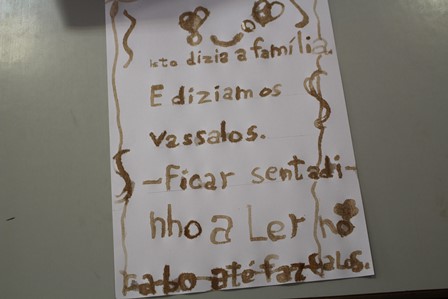 isto dizia a família.
E diziam os
vassalos.
-Ficar sentadi-
nho a Ler no
Rabo até faz calos.